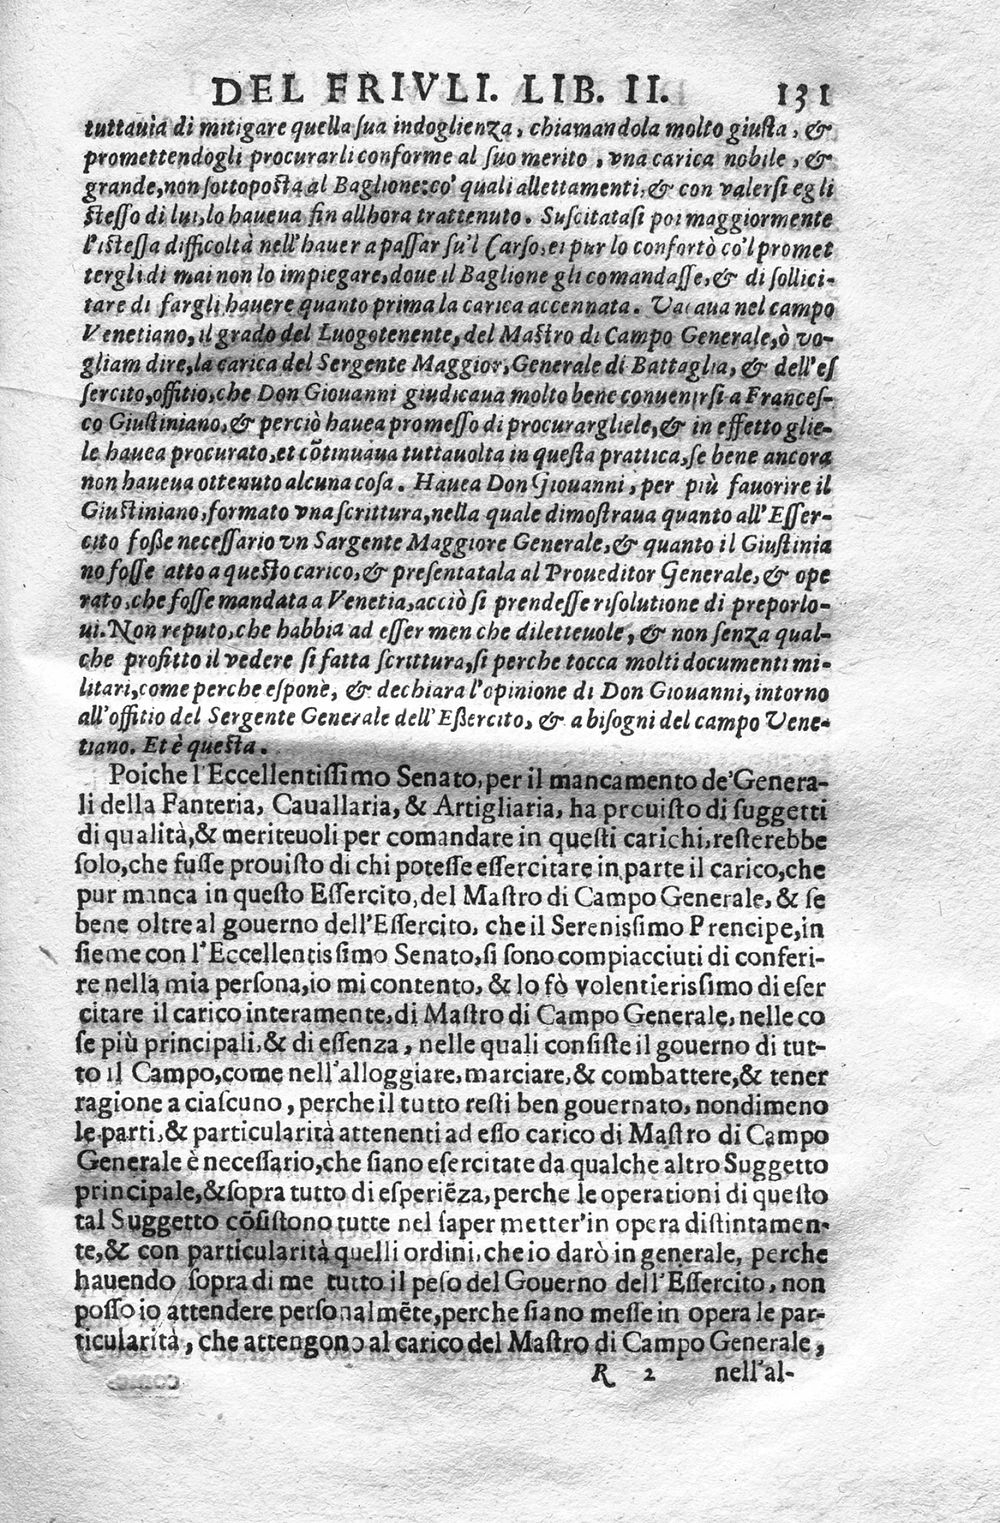 DEL FRIVLI. LIB. II. 131
tuttauia di mitigare quella ſua indoglienza, chiamandola molto giuſta, &
promettendogli procurarli conforme al ſuo merito, vna carica nobile, &
grande, non ſottopoſta al Baglione: co' quali allettamenti, & con valerſi egli
ſteſſo di lui, lo haueua fin allhora trattenuto. Suſcitataſi poi maggiormente
l'iſteſſa difficoltà nell'hauer a paſſar ſu'l Carſo, ei pur lo confortò co'l promet
tergli di mai non lo impiegare, doue il Baglione gli comandaſſe, & di ſollici-
tare di fargli hauere quanto prima la carica accennata. Vacaua nel campo
Venetiano, il grado del Luogotenente, del Maſtro di Campo Generale, ò vo-
gliam dire, la carica del Sergente Maggior, Generale di Battaglia, & dell'eſ
ſercito, offitio, che Don Giouanni giudicaua molto bene conuenirſi a Franceſ-
co Giuſtiniano, & perciò hauea promeſſo di procurargliele, & in effetto glie-
le hauea procurato, et cõtinuaua tuttauolta in queſta prattica, ſe bene ancora
non haueua ottenuto alcuna coſa. Hauea Don Giouanni, per più fauorire il
Giuſtiniano, formato vna ſcrittura, nella quale dimoſtraua quanto all'Eſſer-
cito foße neceſſario vn Sargente Maggiore Generale, & quanto il Giuſtinia
no foſſe atto a queſto carico, & preſentatala al Proueditor Generale, & ope
rato, che foſſe mandata a Venetia, acciò ſi prendeſſe riſolutione di preporlo-
ui. Non reputo, che habbia ad eſſer men che diletteuole, & non ſenza qual-
che profitto il vedere ſi fatta ſcrittura, ſi perche tocca molti documenti mi-
litari, come perche eſpone, & dechiara l'opinione di Don Giouanni, intorno
all'offitio del Sergente Generale dell'Eßercito, & a biſogni del campo Vene-
tiano. Et è queſta.
Poiche l'Eccellentiſſimo Senato, per il mancamento de'Genera-
li della Fanteria, Cauallaria, & Artigliaria, ha prouiſto di ſuggetti
di qualità, & meriteuoli per comandare in queſti carichi, reſterebbe
ſolo, che fuſſe prouiſto di chi poteſſe eſſercitare in parte il carico, che
pur manca in queſto Eſſercito, del Maſtro di Campo Generale, & ſe
bene oltre al gouerno dell'Eſſercito, che il Sereniſſimo Prencipe, in
ſieme con l'Eccellentiſſimo Senato, ſi ſono compiacciuti di conferi-
re nella mia perſona, io mi contento, & lo fò volentieriſſimo di eſer
citare il carico interamente, di Maſtro di Campo Generale, nelle co
ſe più principali, & di eſſenza, nelle quali conſiſte il gouerno di tut-
to il Campo, come nell'alloggiare, marciare, & combattere, & tener
ragione a ciaſcuno, perche il tutto reſti ben gouernato, nondimeno
le parti, & particularità attenenti ad eſſo carico di Maſtro di Campo
Generale è neceſſario, che ſiano eſercitate da qualche altro Suggetto
principale, & ſopra tutto di eſperiẽza, perche le operationi di queſto
tal Suggetto cõſiſtono tutte nel ſaper metter'in opera diſtintamen-
te, & con particularità quelli ordini, che io darò in generale, perche
hauendo ſopra di me tutto il peſo del Gouerno dell'Eſſercito, non
poſſo io attendere perſonalmẽte, perche ſiano meſſe in opera le par-
ticularità, che attengono al carico del Maſtro di Campo Generale,
R 2 nell'al-